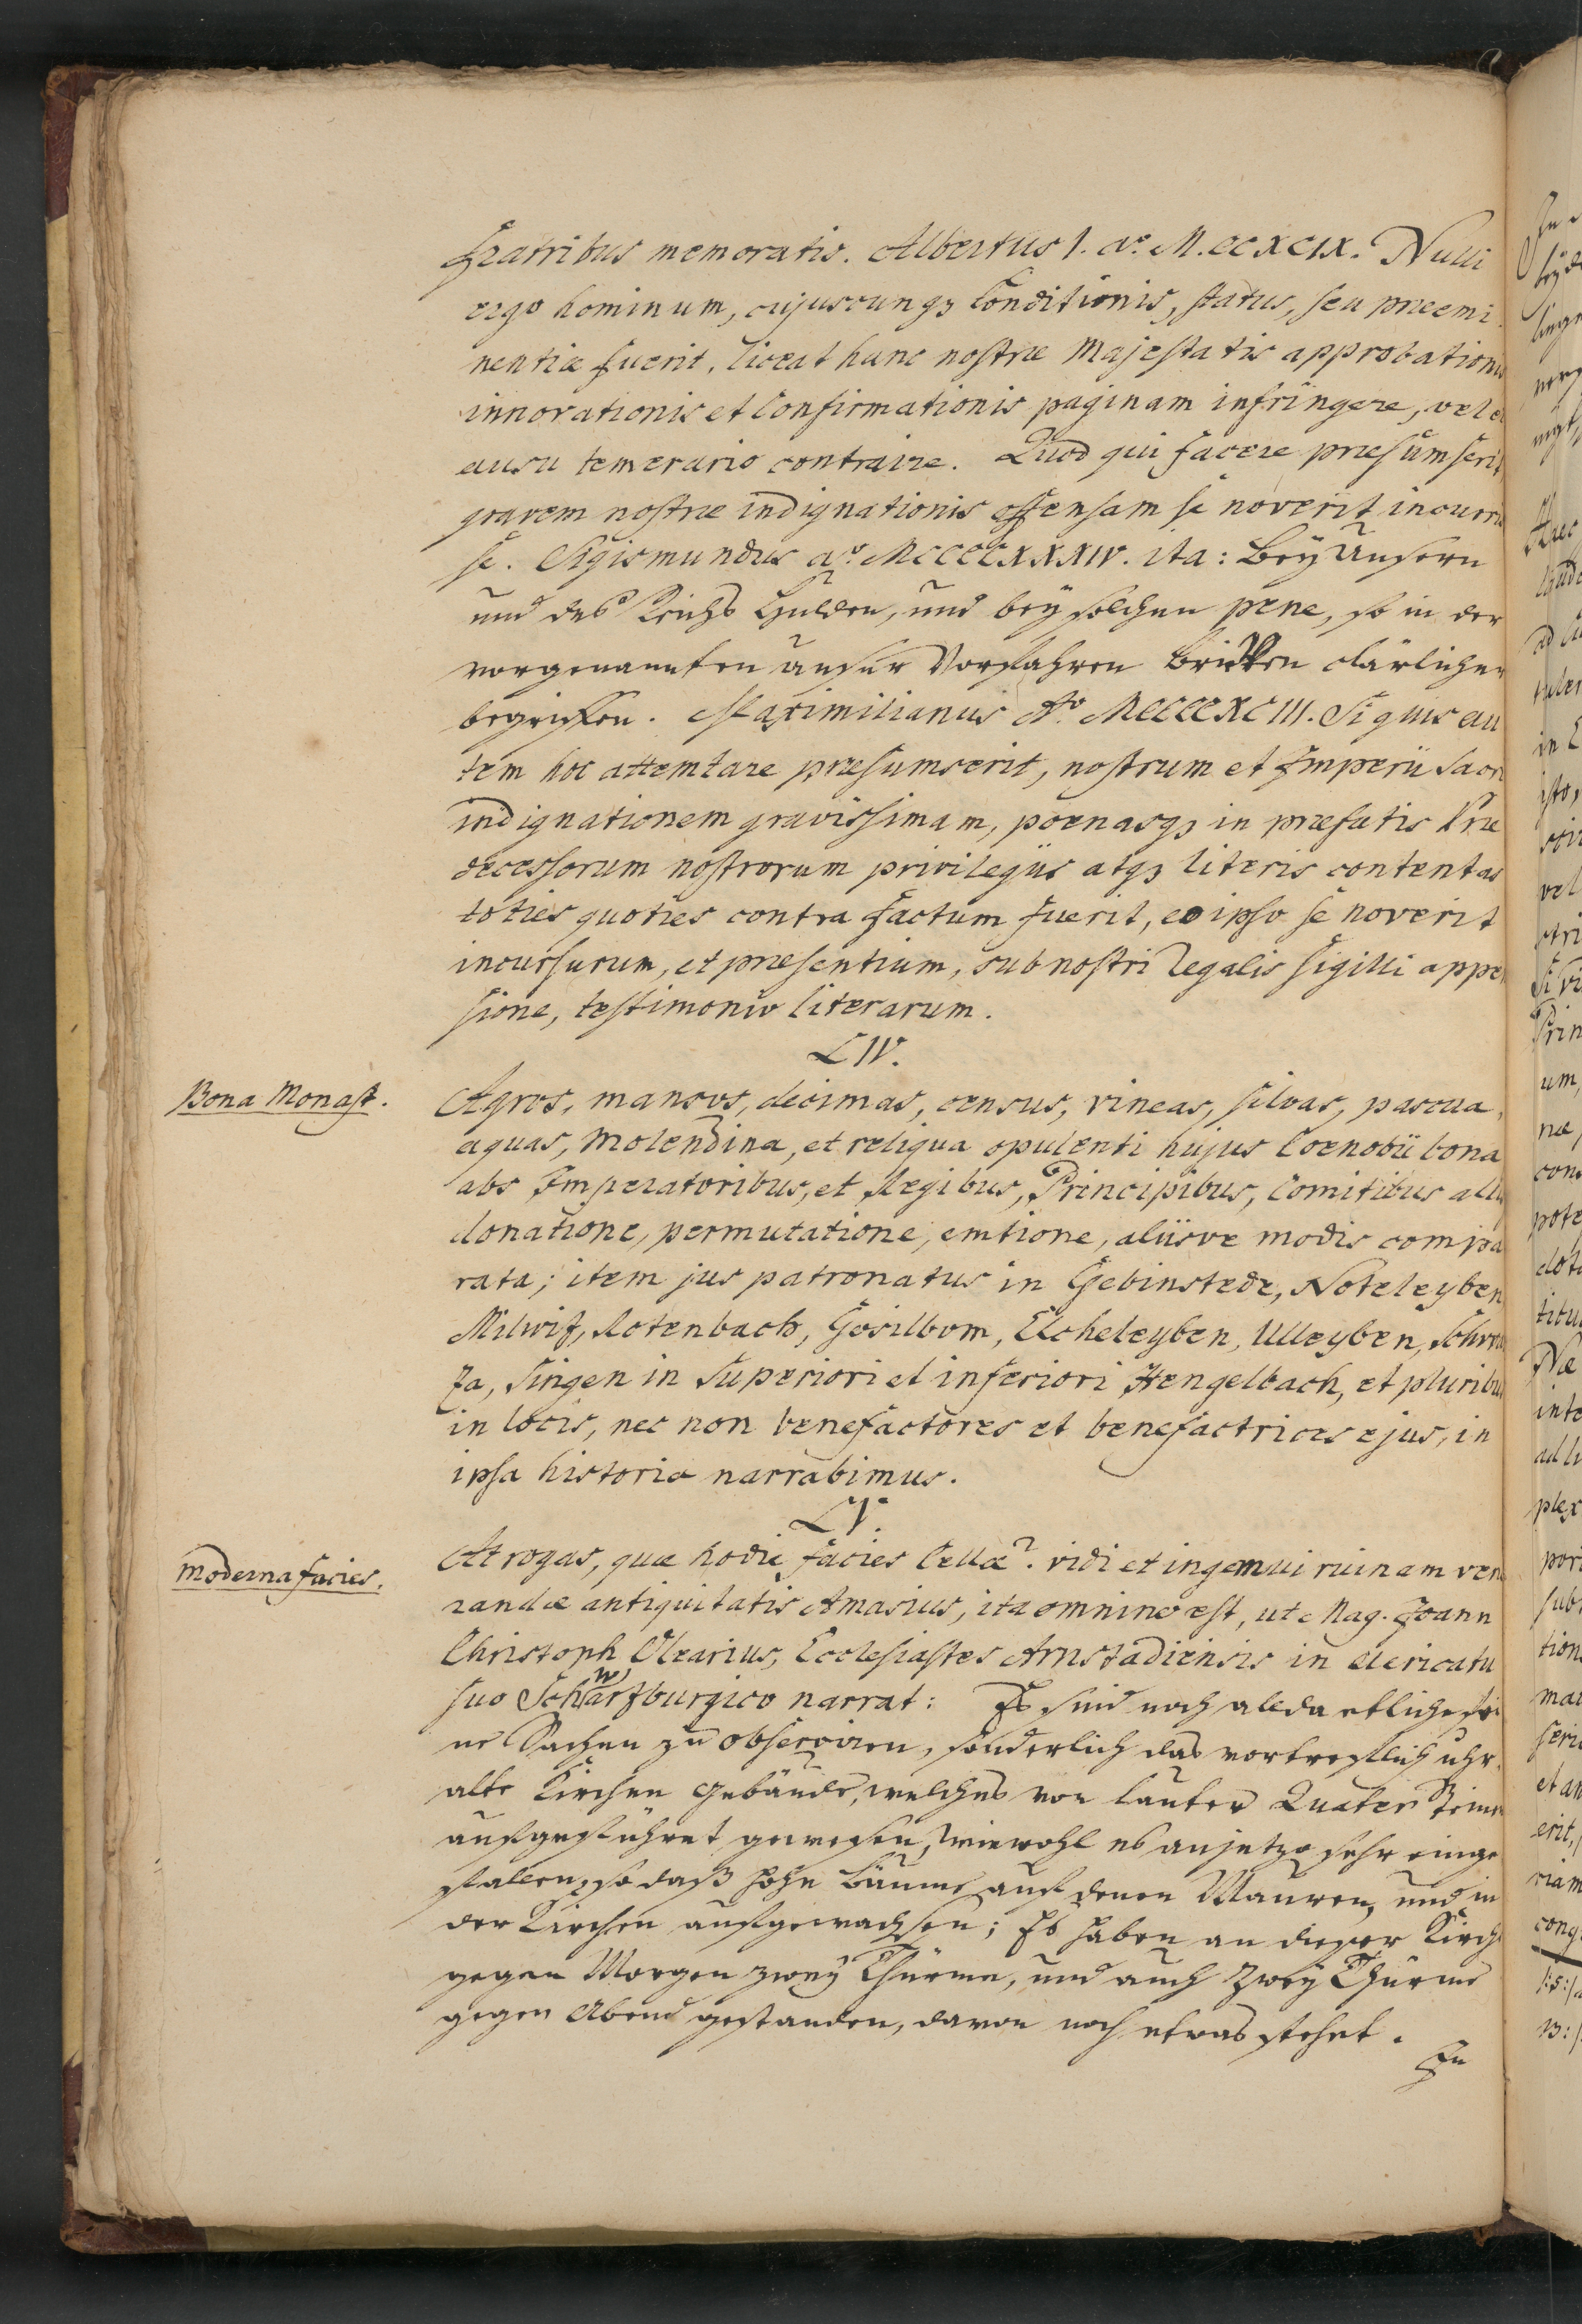 Fratribus memoratis. Albertus I. ao. M.CCXCIX. Nulli
ergo hominum, cujuscunq3 Conditionis, status, seu præemi
nentiæ fuerit, liceat hanc nostræ Majestatis approbationis
innovationis et Confirmationis paginam infringere, vel ei
ausu temerario contraire. Quod qui facere præsumserit,
gravem nostræ indignationis offensam se noverit incurris
se. Sigismundus ao. MCCCCXXXIV. ita: Bey Unsern
und des Reichs Hulden, und bey solchen pene, so in der
vorgenannten unser Vorfahren Brieffen clärlichen
begriffen. Maximilianus Ao. MCCCCXCIII. Si quis au
tem hoc attemtare præsumserit, nostrum et Imperii Sacri
indignationem gravissimam, poenasq3 in præfatis Præ
decessorum nostrorum privilegiis atq3 literis contentas
toties quoties contra factum fuerit, eo ipso se noverit
incursurum, et præsentium, sub nostri Regalis sigilli appen
sione, testimonio literarum.
LIV.
Bona Monast.
Agros, mansos, decimas, census, vineas, silvas, pascua,
aquas, molendina, et reliqua opulenti hujus Coenobii bona
abs Imperatoribus, et Regibus, Principibus, Comitibus aliis
donatione, permutatione, emtione, aliisve modis compa
rata; item jus patronatus in Gebinstede, Noteleyben
Milwiz, Rotenbach, Gosilborn, Elcheleyben, Ulleyben, Schro
za, Singen in Superiori et inferiori Hengelbach, et pluribus
in locis, nec non benefactores et benefactrices ejus, in
ipsa historia narrabimus.
LV.
Moderna facies.
At rogas, quæ hodie facies Cellæ? vidi et ingemui ruinam vene
randæ antiquitatis Amasius, ita omnino est, ut Mag. Joann
Christoph Olearius, Ecclesiastes Arnstadiensis in clericatu
suo Schwarzburgico narrat: Es sind noch allda etliche fei
ne Sachen zu observiren, sonderlich das vortrefflich uhr
alte Kirchen Gebäude, welches von lauter Quater Steinen
aufgeführet gewesen, wiewohl es anjetzo sehr einge
fallen, so daß hohe Bäume auf denen Mauren, und in
der Kirchen aufgewachsen; Es haben an dieser Kirche
gegen Morgen zwey Thürme, und auch zwey Thürme
gegen Abend gestanden, davon noch etwas stehet.
In